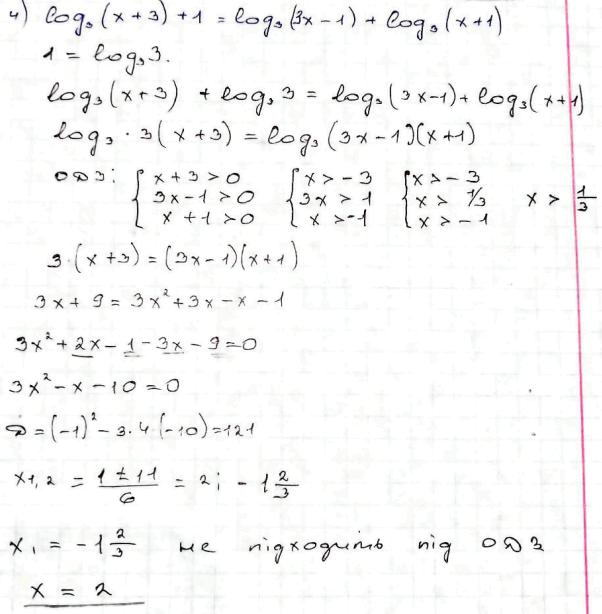 4) log₃(x+3)+1 = log₃(3x-1) + log₃(x+1)
1 = log₃3.
log₃(x+3) + log₃3 = log₃(3x-1) + log₃(x+1)
log₃·3(x+3) = log₃(3x-1)(x+1)
ОДЗ: { x+3>0 { x>-3 { x>-3 x > 1/3
3x-1>0 3x>1 x> 1/3
x+1>0 x>-1 x>-1
3·(x+3) = (3x-1)(x+1)
3x+9 = 3x²+3x-x-1
3x²+2x-1-3x-9=0
3x²-x-10=0
D=(-1)²-3·4(-10)=121
x1,2 = 1±11/6 = 2; -1 2/3
x₁ = -1 2/3 не підходить під ОДЗ
x = 2